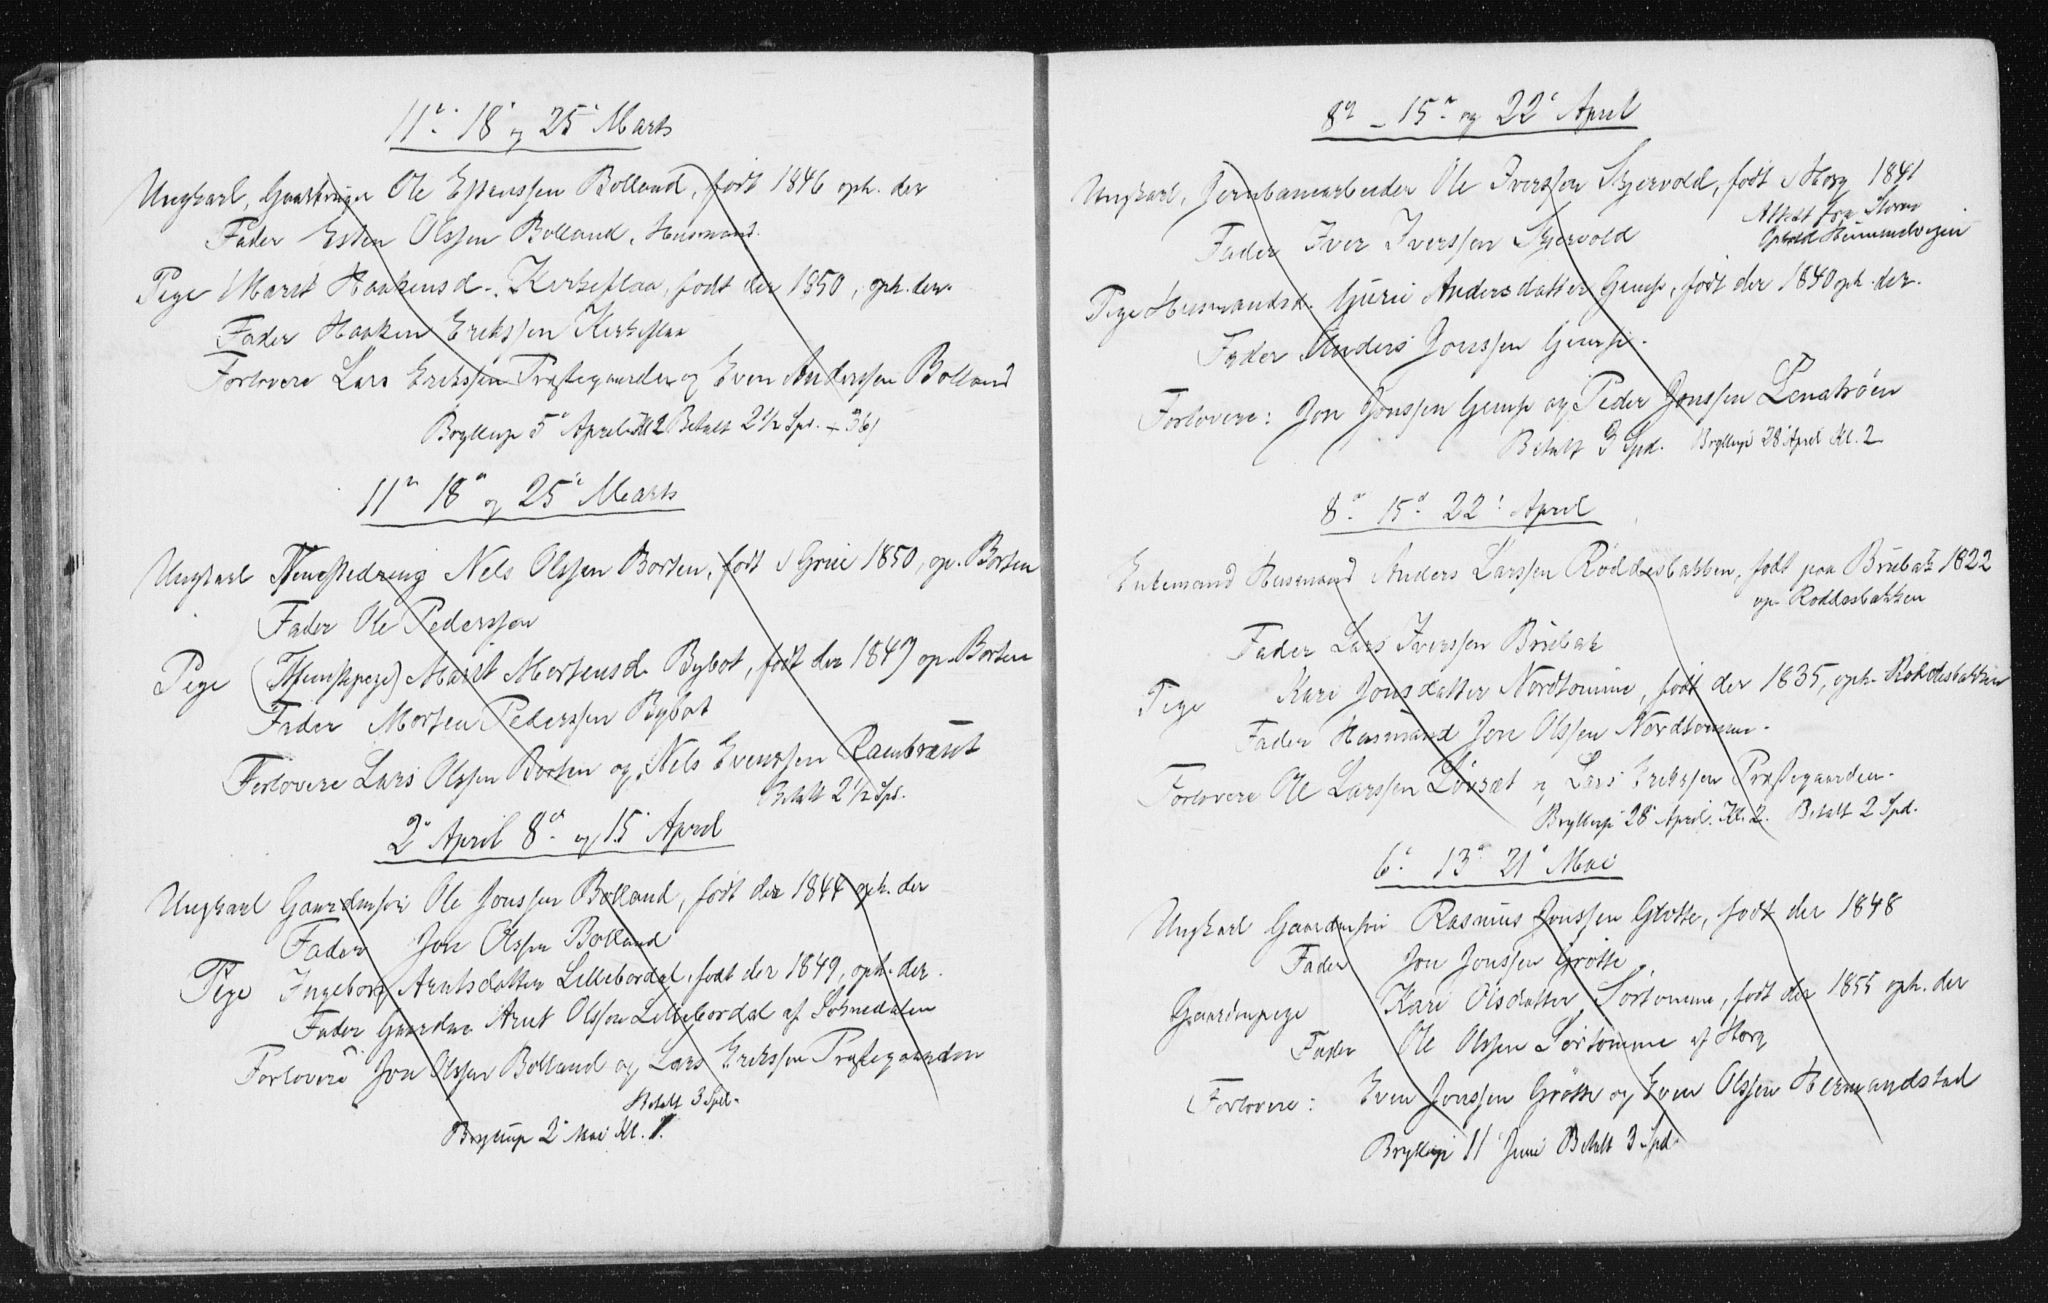 11te 18e og 25e Marts
Ungkarl, Gaardbruger Ole Estenssen Bolland, født 1846 oph. der
Fader Esten Olssen Bolland, Husmand.
Pige Marit Haakensd. Kirkeflaa, født der 1850, oph. der.
Fader Haaken Erikssen Kirkeflaa
Forlovere Lars Erikssen Præstegaarden og Even Anderssen Bolland
Bryllup 5e April Kl 2 Betalt 2 1/2 Spd.
11te 18e og 25e Marts
Ungkarl Tjenestedreng Nels Olssen Borten, født i 1850, op. Borten
Fader Ole Pederssen
Pige (Tjenestepige) Marit Mortensd. Bybot, født der 1847 op. Borten
Fader Morten Pederssen Bybot
Forlovere Lars Olssen Borten og Nels Evenssen
Betalt 2 1/2 Spd.
2e April 8de og 15 April
Ungkarl Gaardmsøn Ole Jonssen Bolland, født der 1844 oph. der
Fader Jon Olssen Bolland
Pige Ingeborg Arntsdatter Lillebordal, født der 1849, oph. der.
Fader Gaardm Arnt Olsson Lillebordal af Soknedalen
Forlovere Jon Olssen Bolland og Lars Erikssen Præstegaarden
Betalt 3 Spd.
Bryllup 2e Mai Kl. 1.
8de – 15de og 22e April
Ungkarl, Jernbanearbeider Ole Iverssen Skjervold, født i Horg 1841
Attest fra Støren
Ophold
Fader Iver Iverssen Skjervold
Pige Husmandsd. Guri Andersdatter Gjemse, født der 1840 oph. der.
Fader Anders Jonssen
Forlovere: Jon Jonssen og Peder Jonssen
Betalt 3 Spd. Bryllup 28 April Kl. 2
8de 15de 22e April
Enkemand Husmand Anders Larssen Røddesbakken, født paa Brubak 1822
op. Røddesbakken
Fader Lars Iverssen Brubak
Pige Kari Jonsdatter Nordtomme, født der 1835, oph. Røddesbakken
Fader Husmand Jon Olssen Nordtomme.
Forlovere Ole Larssen Løvsæt og Lars Erikssen Præstegaarden.
Bryllup 28 April. Kl. 2. Betalt 2 Spd.
6e 13e 21e Mai
Ungkarl Gaardmsøn Rasmus Jonssen Grøtte, født der 1848
Fader Jon Jonssen Grøtte
Gaardmpige Kari Olsdatter Sørtomme, født der 1855 oph. der
Fader Ole Olssen Sørtomme af Horg
Forlovere: Even Jonssen Grøtte og Even Olssen Hermandstad
Bryllup 11 Juni Betalt 3 Spd.